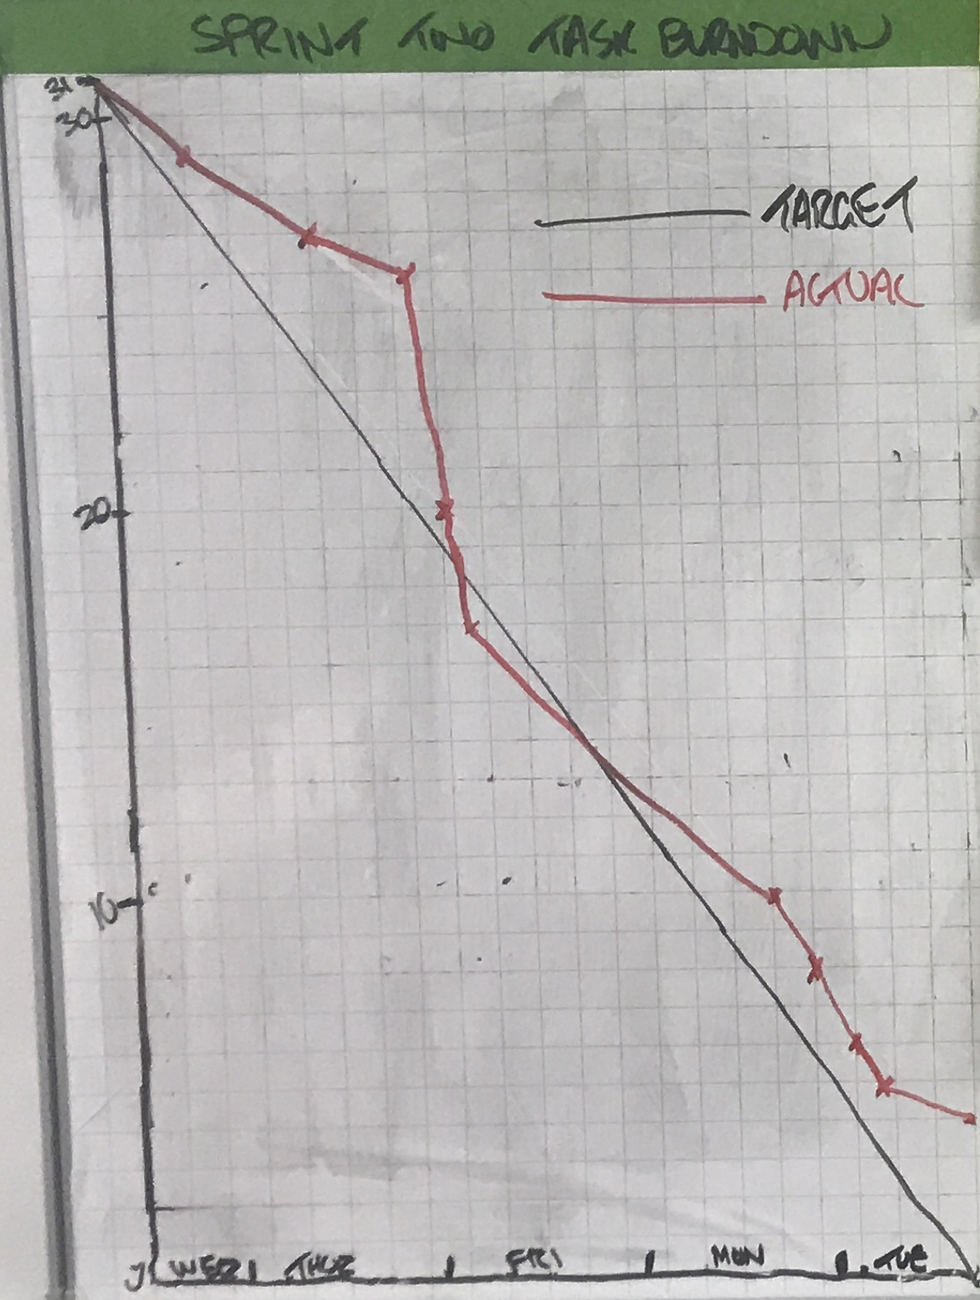 SPRINT TWO TASK BURNDOWN
31
30
TARGET
ACTUAL
20
10
WED THUR FRI MON TUE